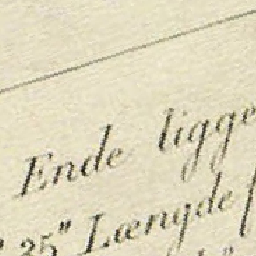 Ende ligge
25" Længde